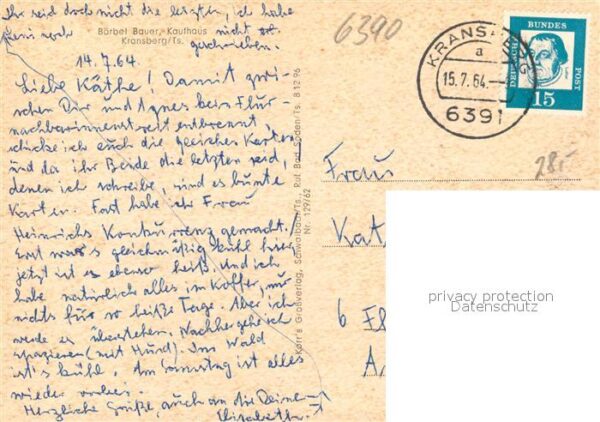 Ihr seid doch nicht die letzten, ich habe
noch nicht
geschrieben.
Bärbel Bauer, Kaufhaus
Kransberg/Ts.
14.7.64.
Liebe Käthe! Damit zwi-
schen Dir und Agnes kein Flur-
nachbarinnenstreit entbrennt,
schicke ich euch die gleichen Karten
und da ihr Beide die letzten seid,
denen ich schreibe, sind es bunte
Karten. Fast habe ich Frau
Heinrichs Konkurrenz gemacht!
Erst war's gleichmäßig kühl hier,
jetzt ist es ebenso heiß. Und ich
habe natürlich alles im Koffer, nur
nichts für so heiße Tage. Aber ich
werde es überstehen. Nachher gehe ich
spazieren (mit Hund). Im Wald
ist's kühl. Am Samstag ist alles
wieder vorbei.
Herzliche Grüße, auch an die Deinen
Elisabeth.
Korr's Großverlag, Schwalbach/Ts., Ruf Bad Soden/Ts. 81296
Nr. 129/62
6390
KRANSBERG
a
15.7.64.
6391
DEUTSCHE BUNDESPOST
15
285
Frau
Kat
6 Fl
A
privacy protection
Datenschutz